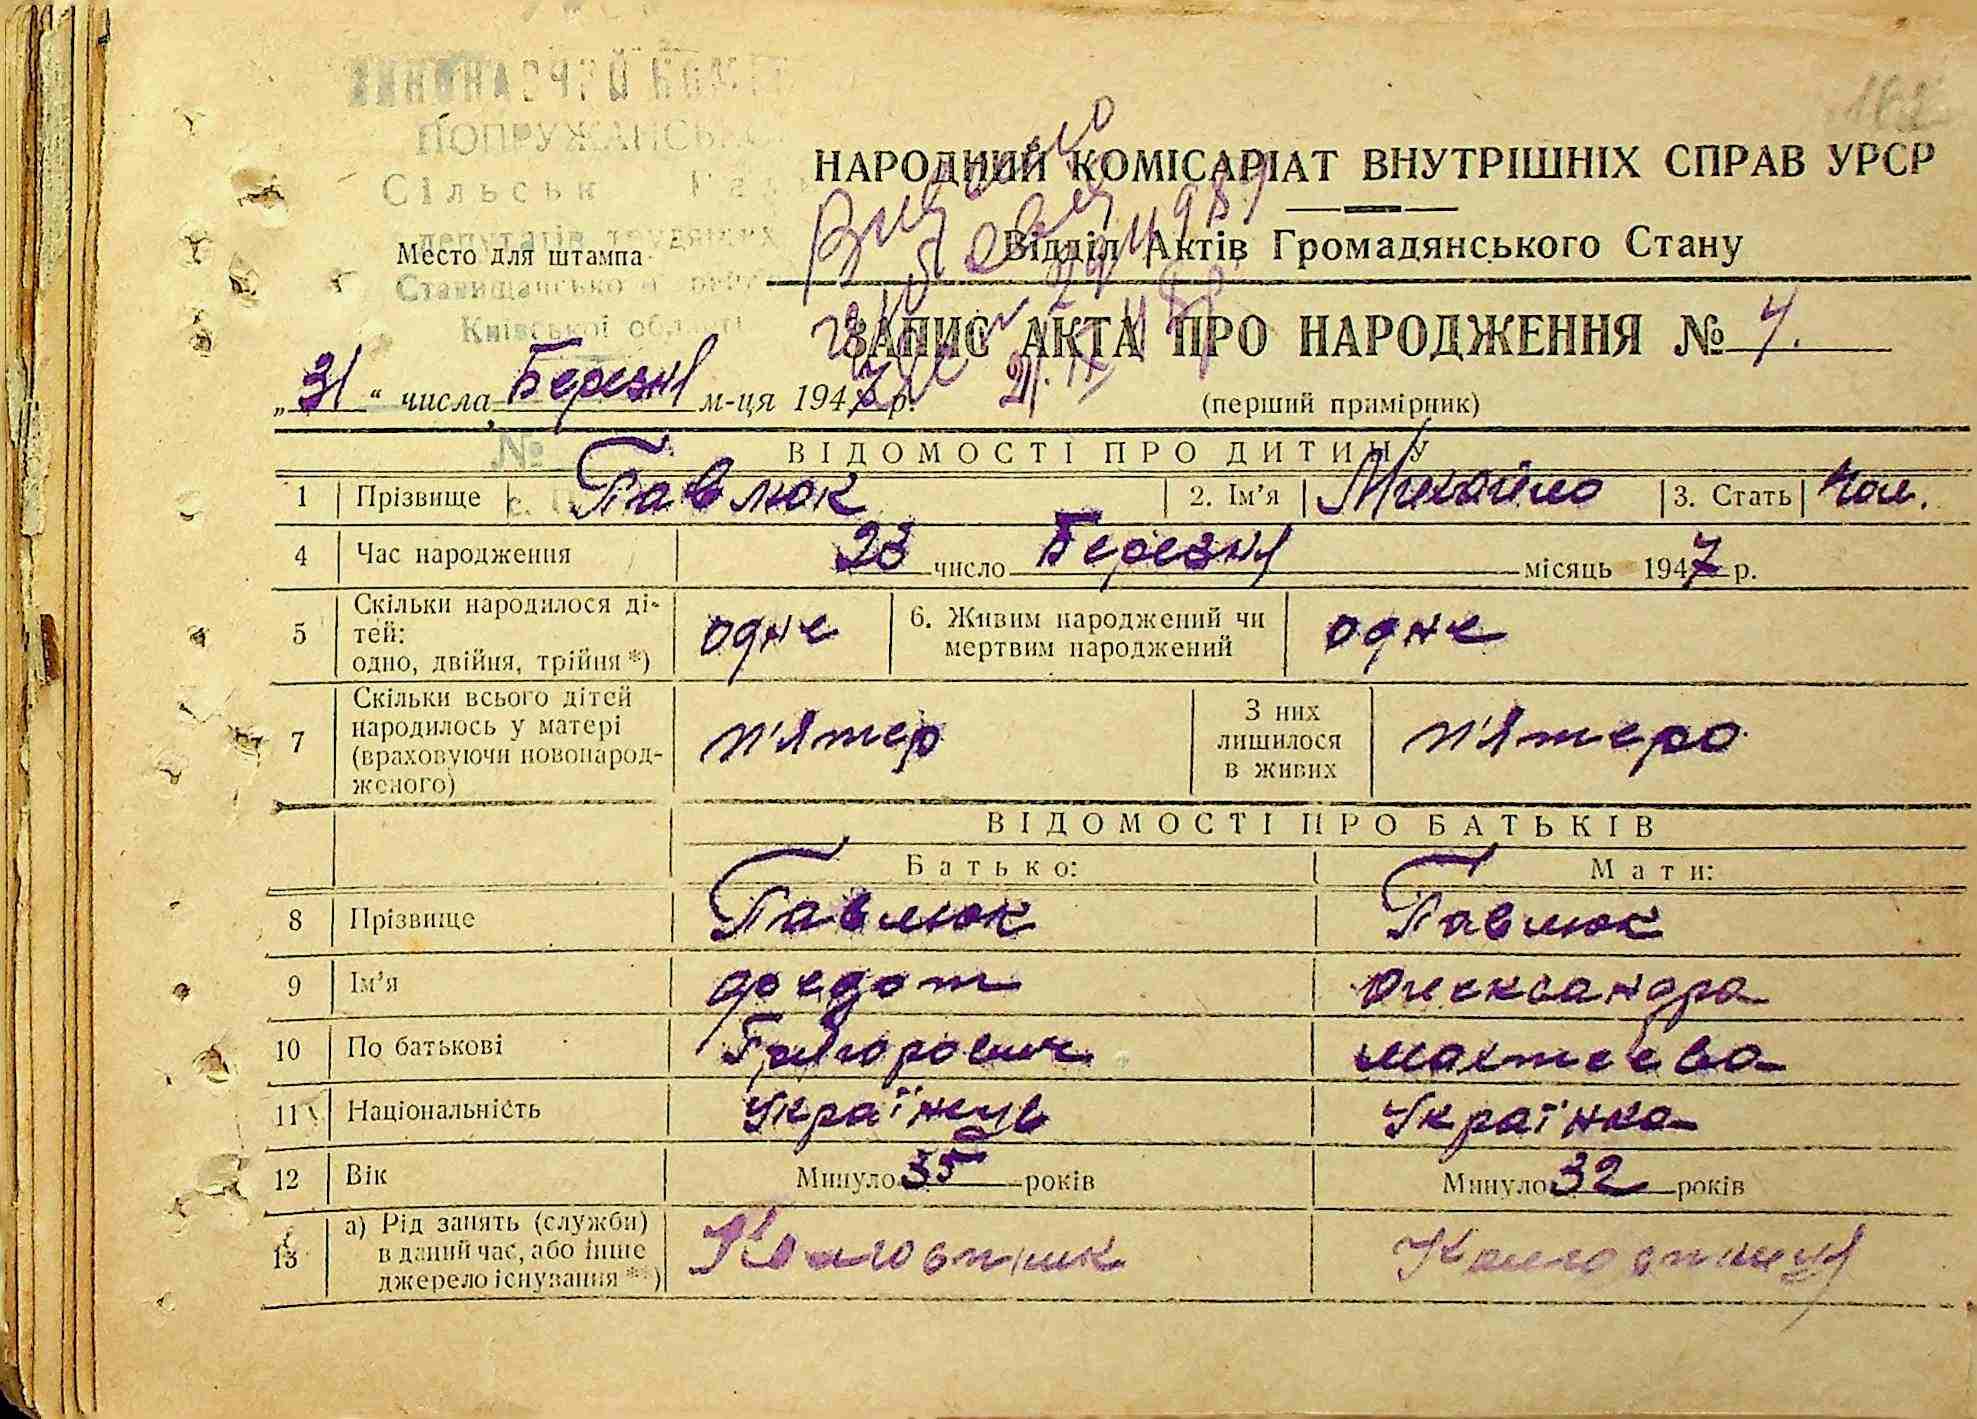 ВИКОНАВЧИЙ КОМІТ
ПОПРУЖАНСЬК
Сільськ Рад
депутатів трудящих
Ставищанського
Київської області
Место для штампа
НАРОДНИЙ КОМІСАРІАТ ВНУТРІШНІХ СПРАВ УРСР
Відділ Актів Громадянського Стану
ЗАПИС АКТА ПРО НАРОДЖЕННЯ № 7.
„31“ числа Березня м-ця 1947 р.
(перший примірник)
№
ВІДОМОСТІ ПРО ДИТИНУ
1 Прізвище Павлюк 2. Ім'я Михайло 3. Стать Чол.
4 Час народження 23 число Березня місяць 1947 р.
5 Скільки народилося ді-
тей:
одно, двійня, трійня *) одне 6. Живим народжений чи
мертвим народжений одне
7 Скільки всього дітей
народилось у матері
(враховуючи новонарод-
женого) п'ятер З них
лишилося
в живих п'ятеро
ВІДОМОСТІ ПРО БАТЬКІВ
Батько: Мати:
8 Прізвище Павлюк Павлюк
9 Ім'я Федот Олександра
10 По батькові Григорович Мактеєва
11 Національність Українець Українка
12 Вік Минуло 35 років Минуло 32 років
13 а) Рід занять (служби)
в даний час, або інше
джерело існування **) Колгоспник Колгоспниця